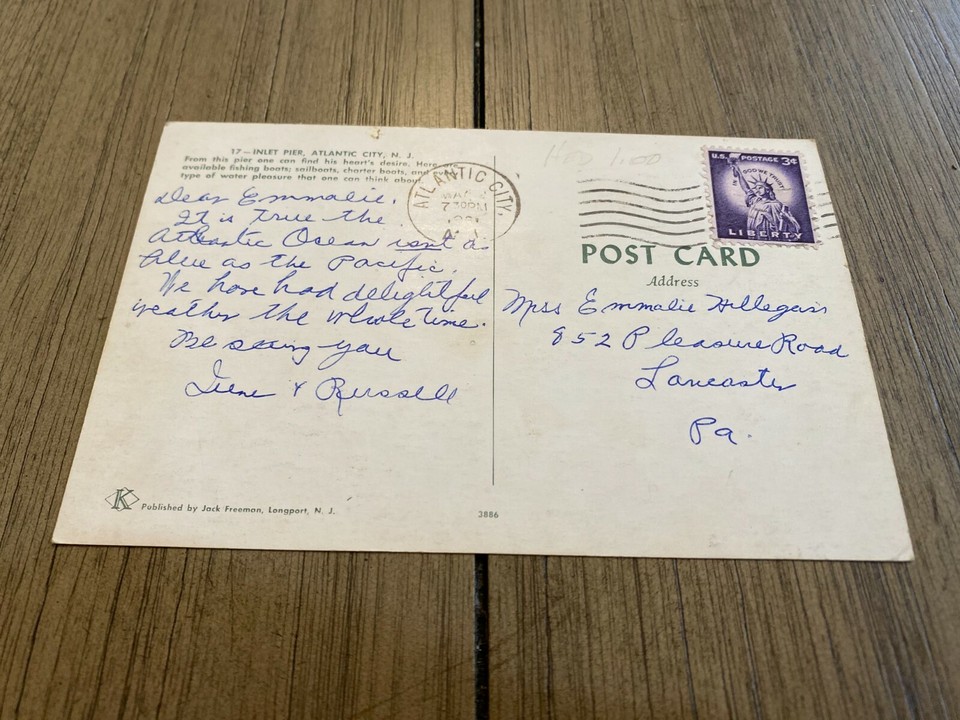 17 — INLET PIER, ATLANTIC CITY, N. J.
From this pier one can find his heart's desire. Here are
available fishing boats; sailboats, charter boats, and
type of water pleasure that one can think about
Dear Emmalie,
It is true the
Atlantic Ocean isn't as
blue as the Pacific.
We have had delightful
weather the whole time.
Be seeing you
Irene & Russell
K
Published by Jack Freeman, Longport, N. J.
3886
ATLANTIC CITY,
7 30PM
U.S. POSTAGE 3¢
IN GOD WE TRUST
LIBERTY
POST CARD
Address
Miss Emmalie Hillegass
852 Pleasure Road
Lancaster
Pa.